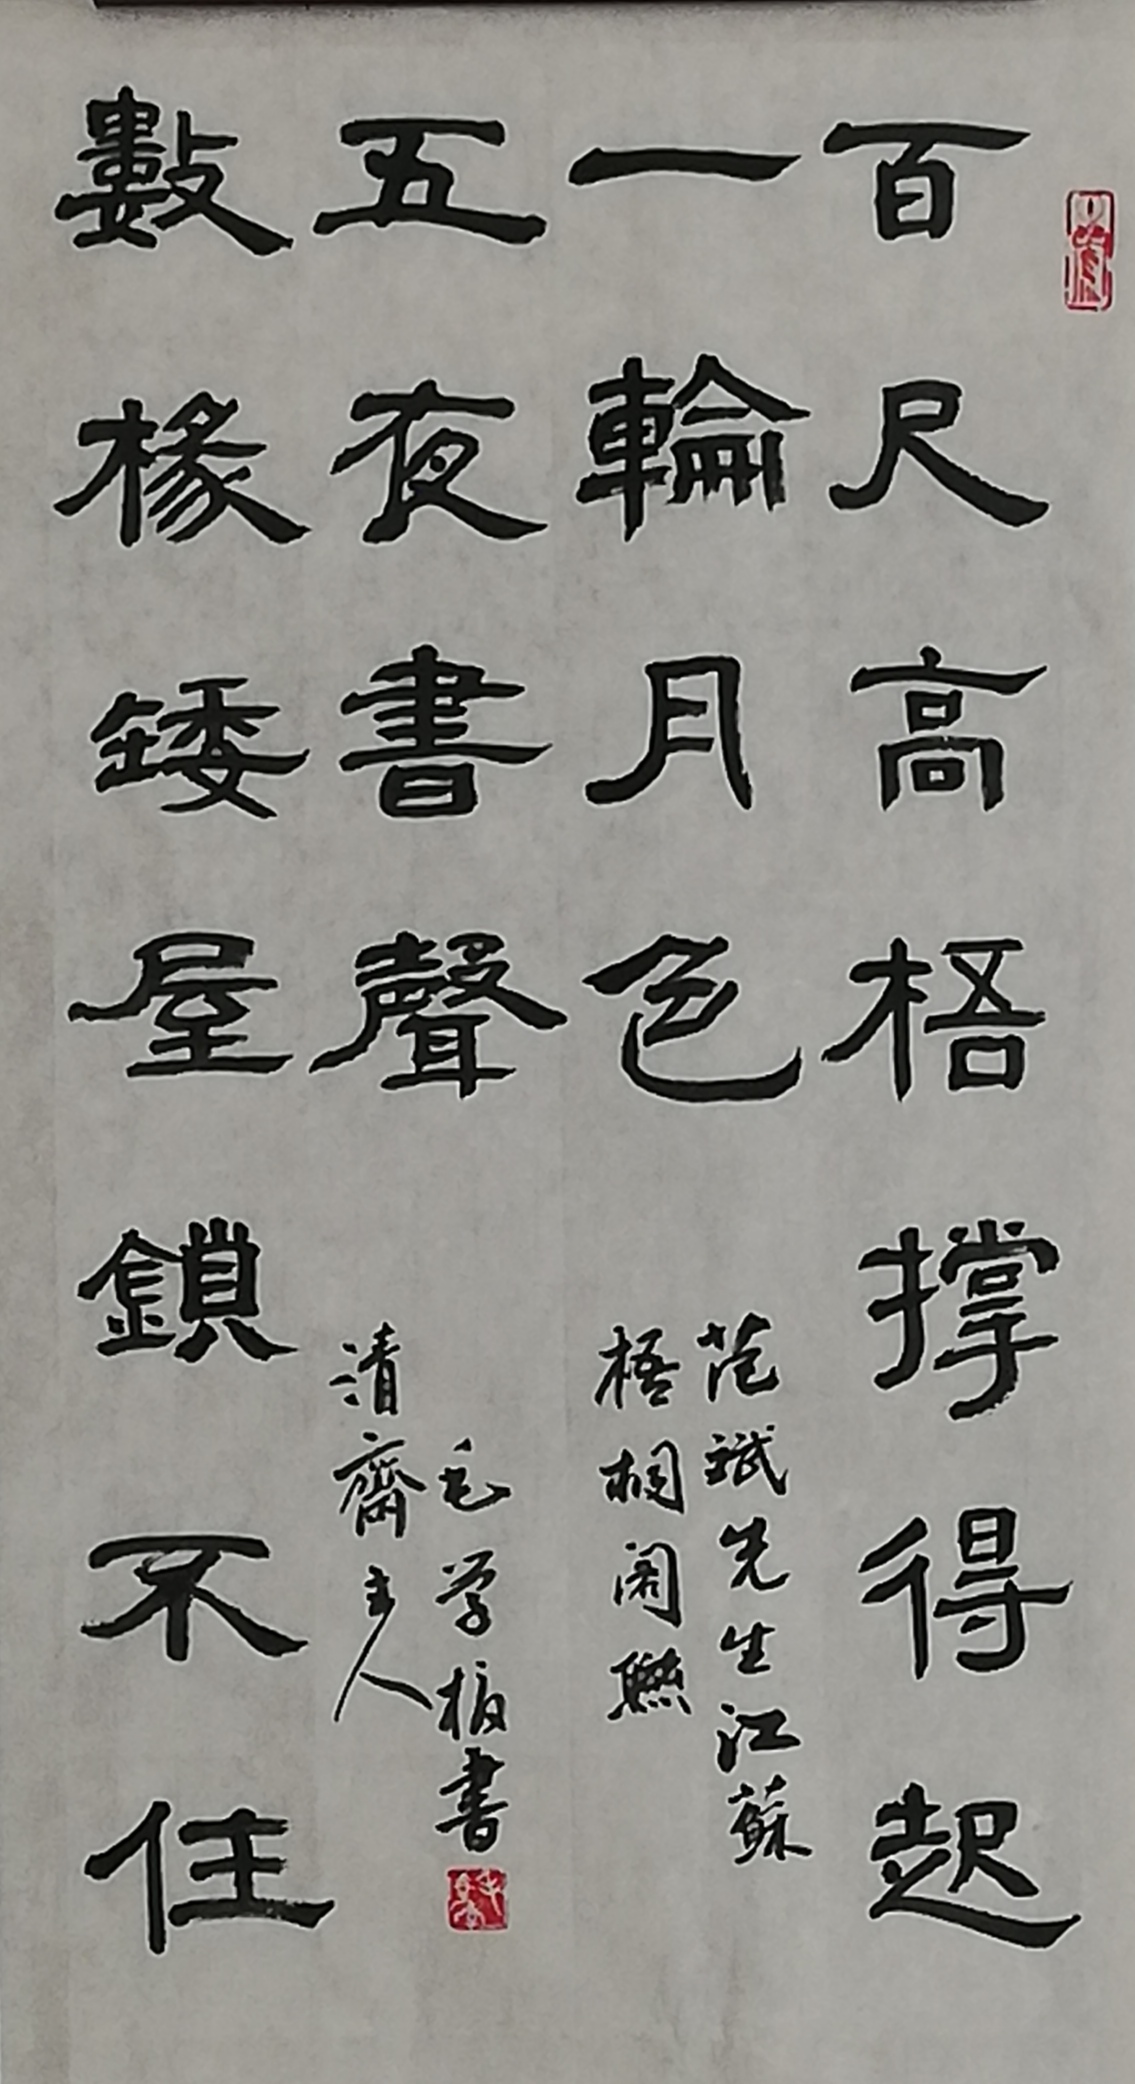 百尺高梧撑得起
一輪月色
范斌先生江蘇
梧桐阁聯
數椽矮屋鎖不住
五夜書聲
毛学板書
清齋主人